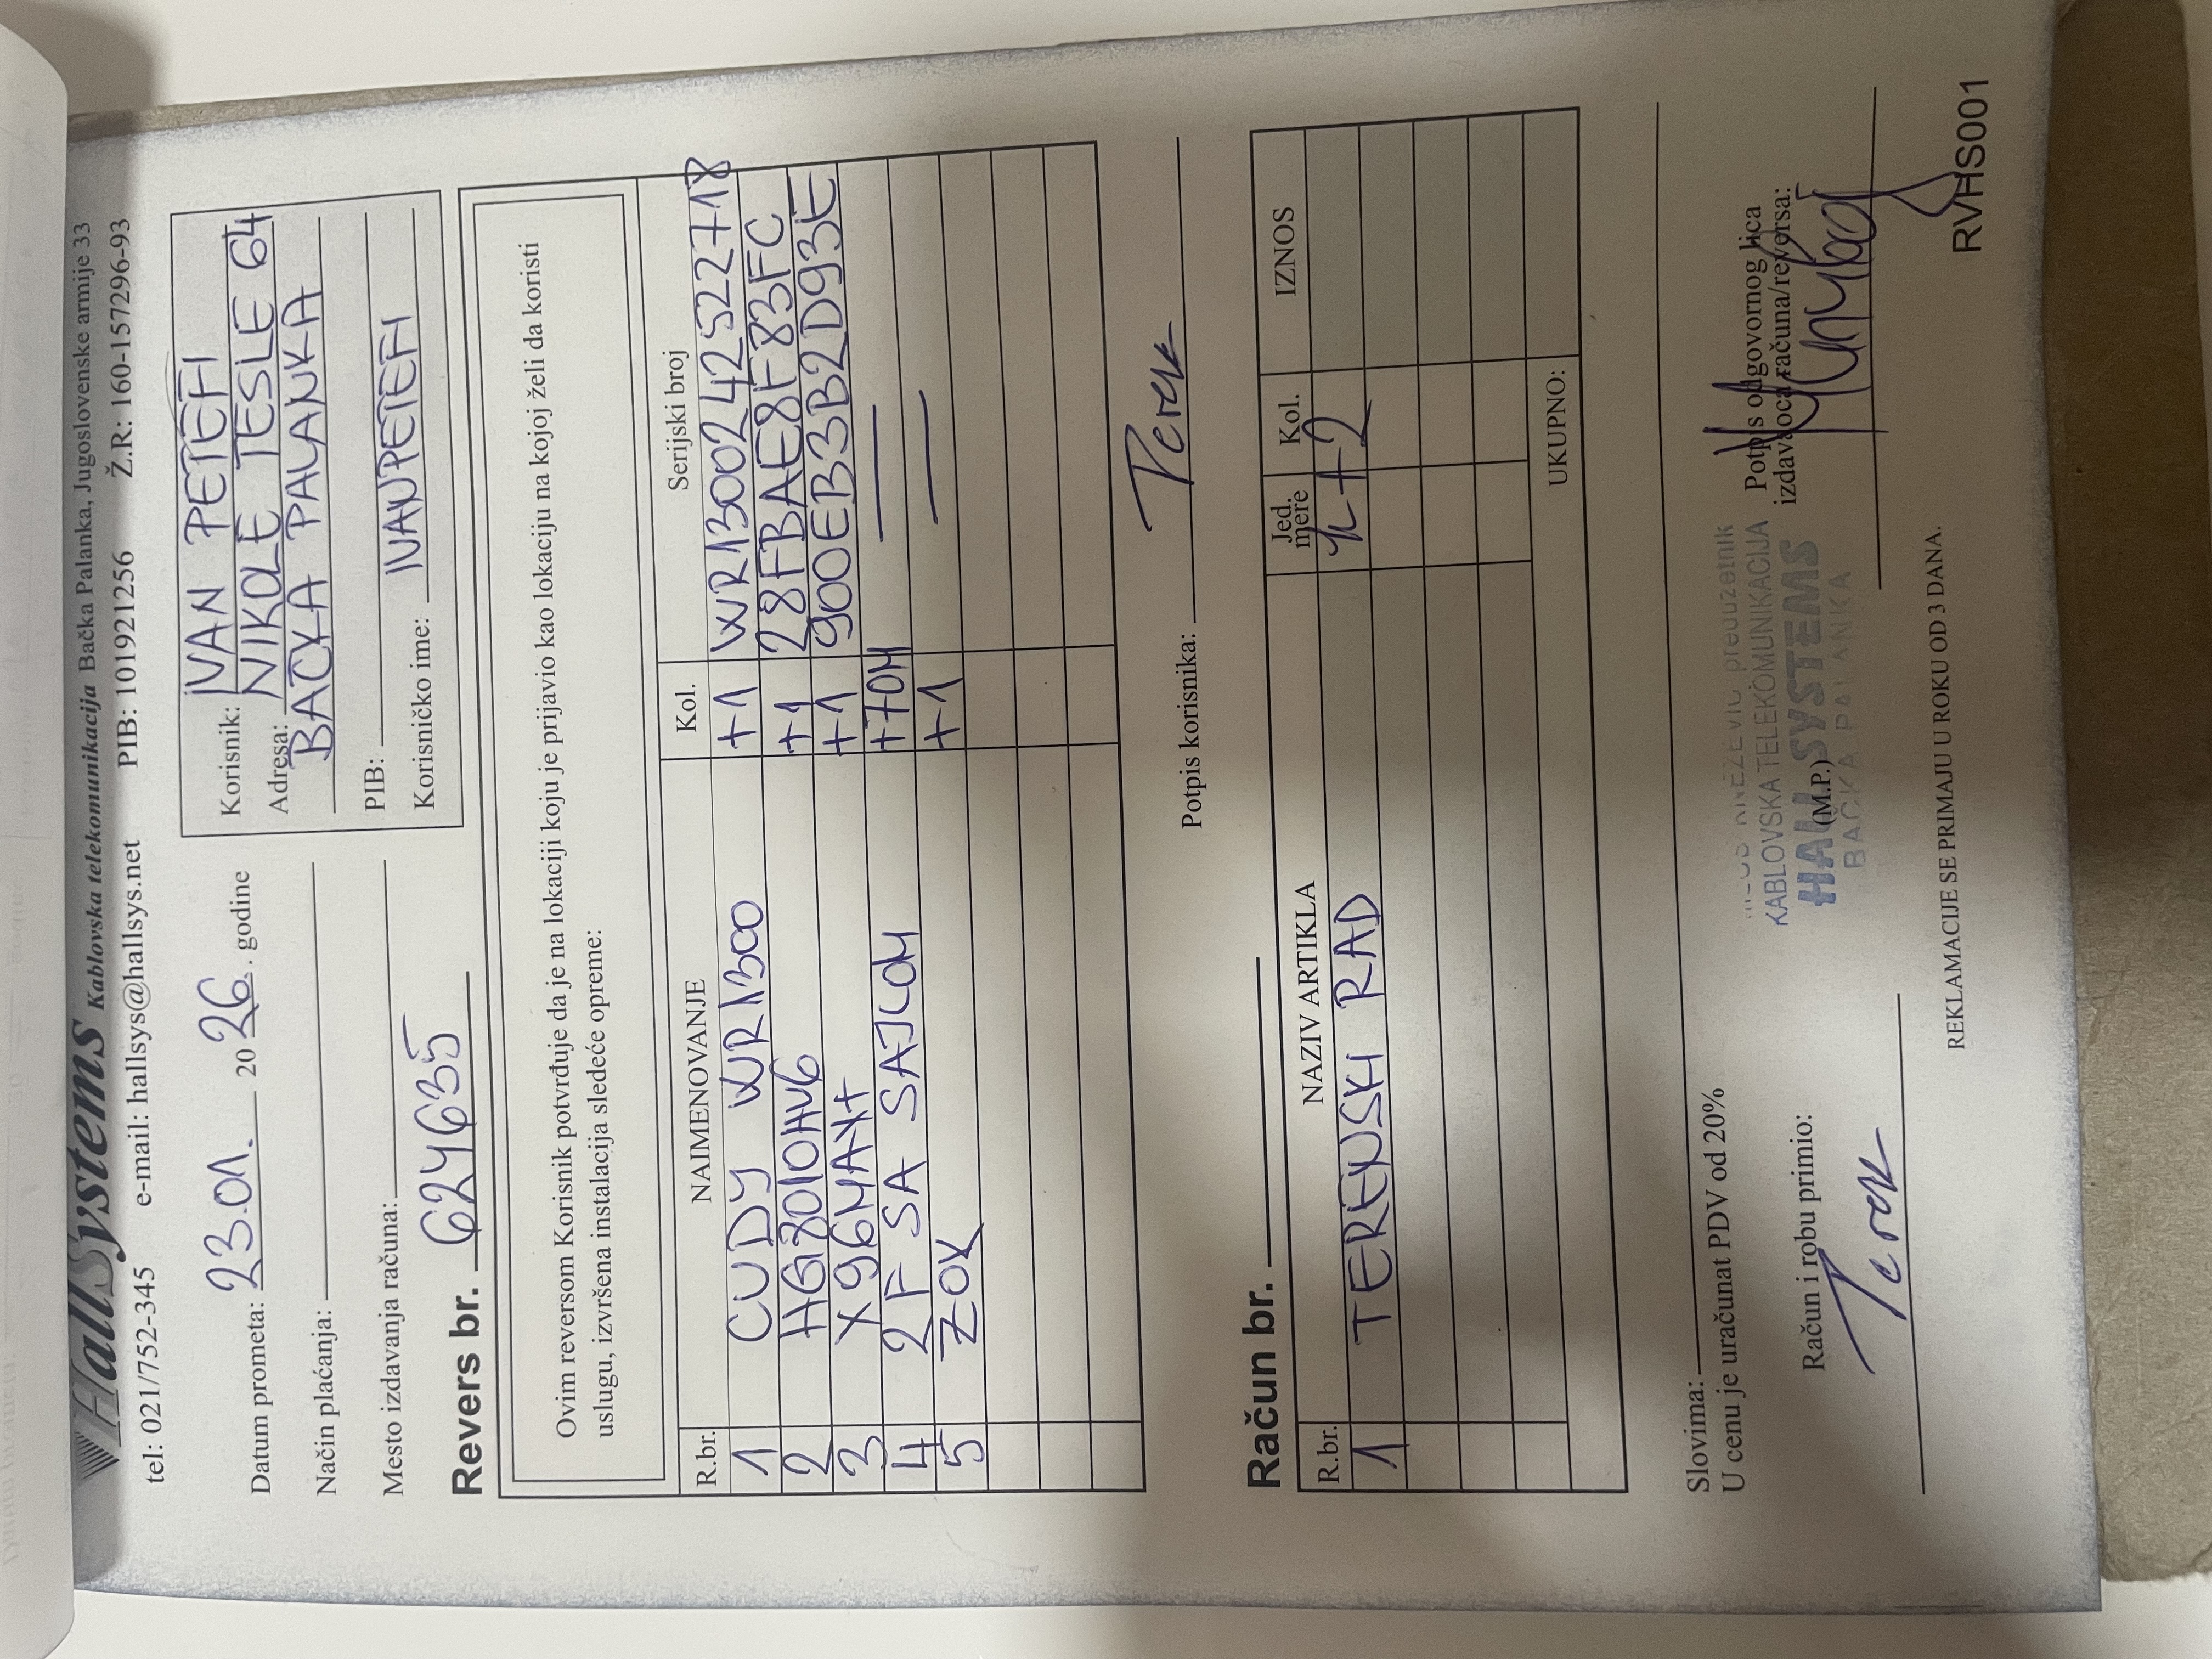 HallSystems Kablovska telekomunikacija Bačka Palanka, Jugoslovenske armije 33
tel: 021/752-345 e-mail: hallsys@hallsys.net PIB: 101921256 Ž.R: 160-157296-93
Datum prometa: 23.01. 2026. godine
Način plaćanja:
Mesto izdavanja računa:
Korisnik: IVAN PETEFI
Adresa: NIKOLE TESLE 64
BAČKA PALANKA
PIB:
Korisničko ime: IVANPETEFI
Revers br. 624635
Ovim reversom Korisnik potvrđuje da je na lokaciji koju je prijavio kao lokaciju na kojoj želi da koristi
uslugu, izvršena instalacija sledeće opreme:
R.br. NAIMENOVANJE Kol. Serijski broj
1 CUDY WR1300 +1 WR1300242522718
2 HG8010HV6 +1 28FBAE8F83FC
3 X96MAX+ +1 900EB3B2D93E
4 2F SA SAJLOM +70M —
5 ZOK +1 —
Potpis korisnika:
Račun br.
R.br. NAZIV ARTIKLA Jed. mere Kol. IZNOS
1 TERENSKI RAD +2
UKUPNO:
Slovima:
U cenu je uračunat PDV od 20%
Račun i robu primio:
preduzetnik
KABLOVSKA TELEKOMUNIKACIJA
HALL SYSTEMS
(M.P.)
BAČKA PALANKA
Potpis odgovornog lica
izdavaoca računa/reversa:
REKLAMACIJE SE PRIMAJU U ROKU OD 3 DANA.
RVHS001